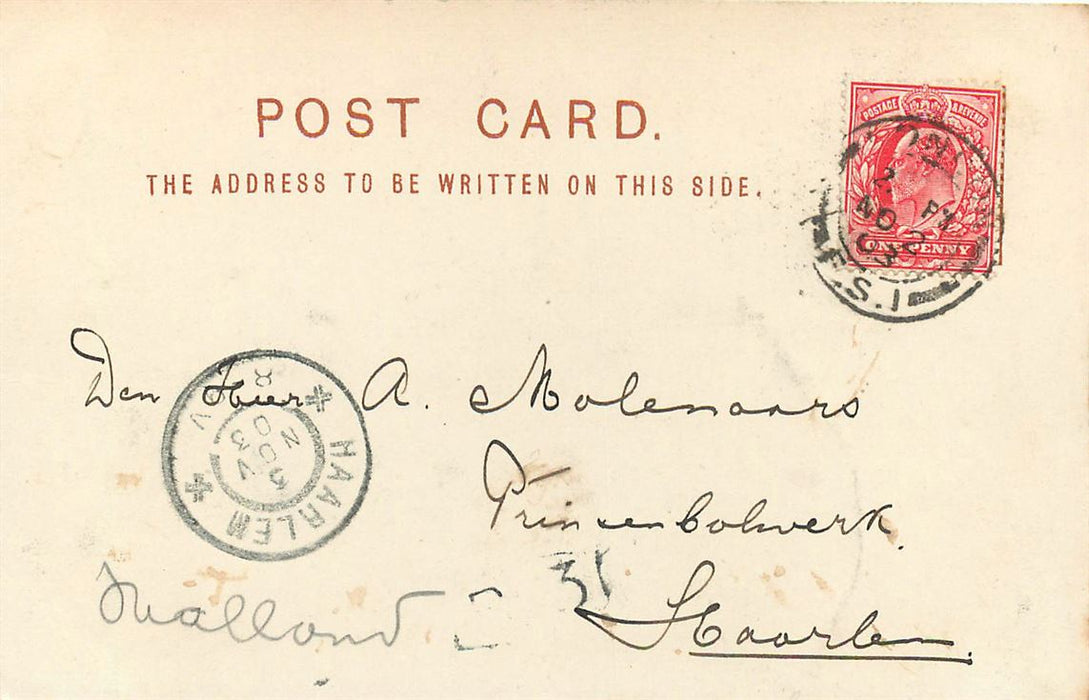 POST CARD.
THE ADDRESS TO BE WRITTEN ON THIS SIDE.
POSTAGE & REVENUE
ONE PENNY
2 PM
NO 2
03
F.S.1
Den Heer A. Molenaars
Prinsenbolwerk.
Haarlem
Holland
31
HAARLEM
3 NOV 03
8 V